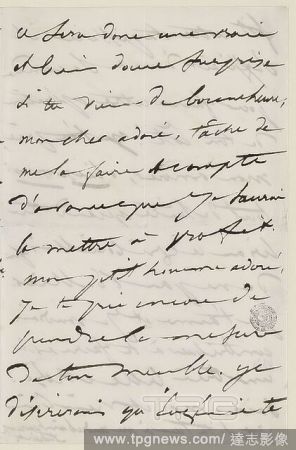 ce sera donc une vraie
et bien douce surprise
si tu viens de bonne heure,
mon cher adoré, tâche de
me la faire et compte
d'avance que je saurai
la mettre à profit.
mon petit homme adoré,
je te prie encore de
prendre la mesure
de ton meuble. je
désirerais qu' te
TPG
www.tpgnews.com / 達志影像